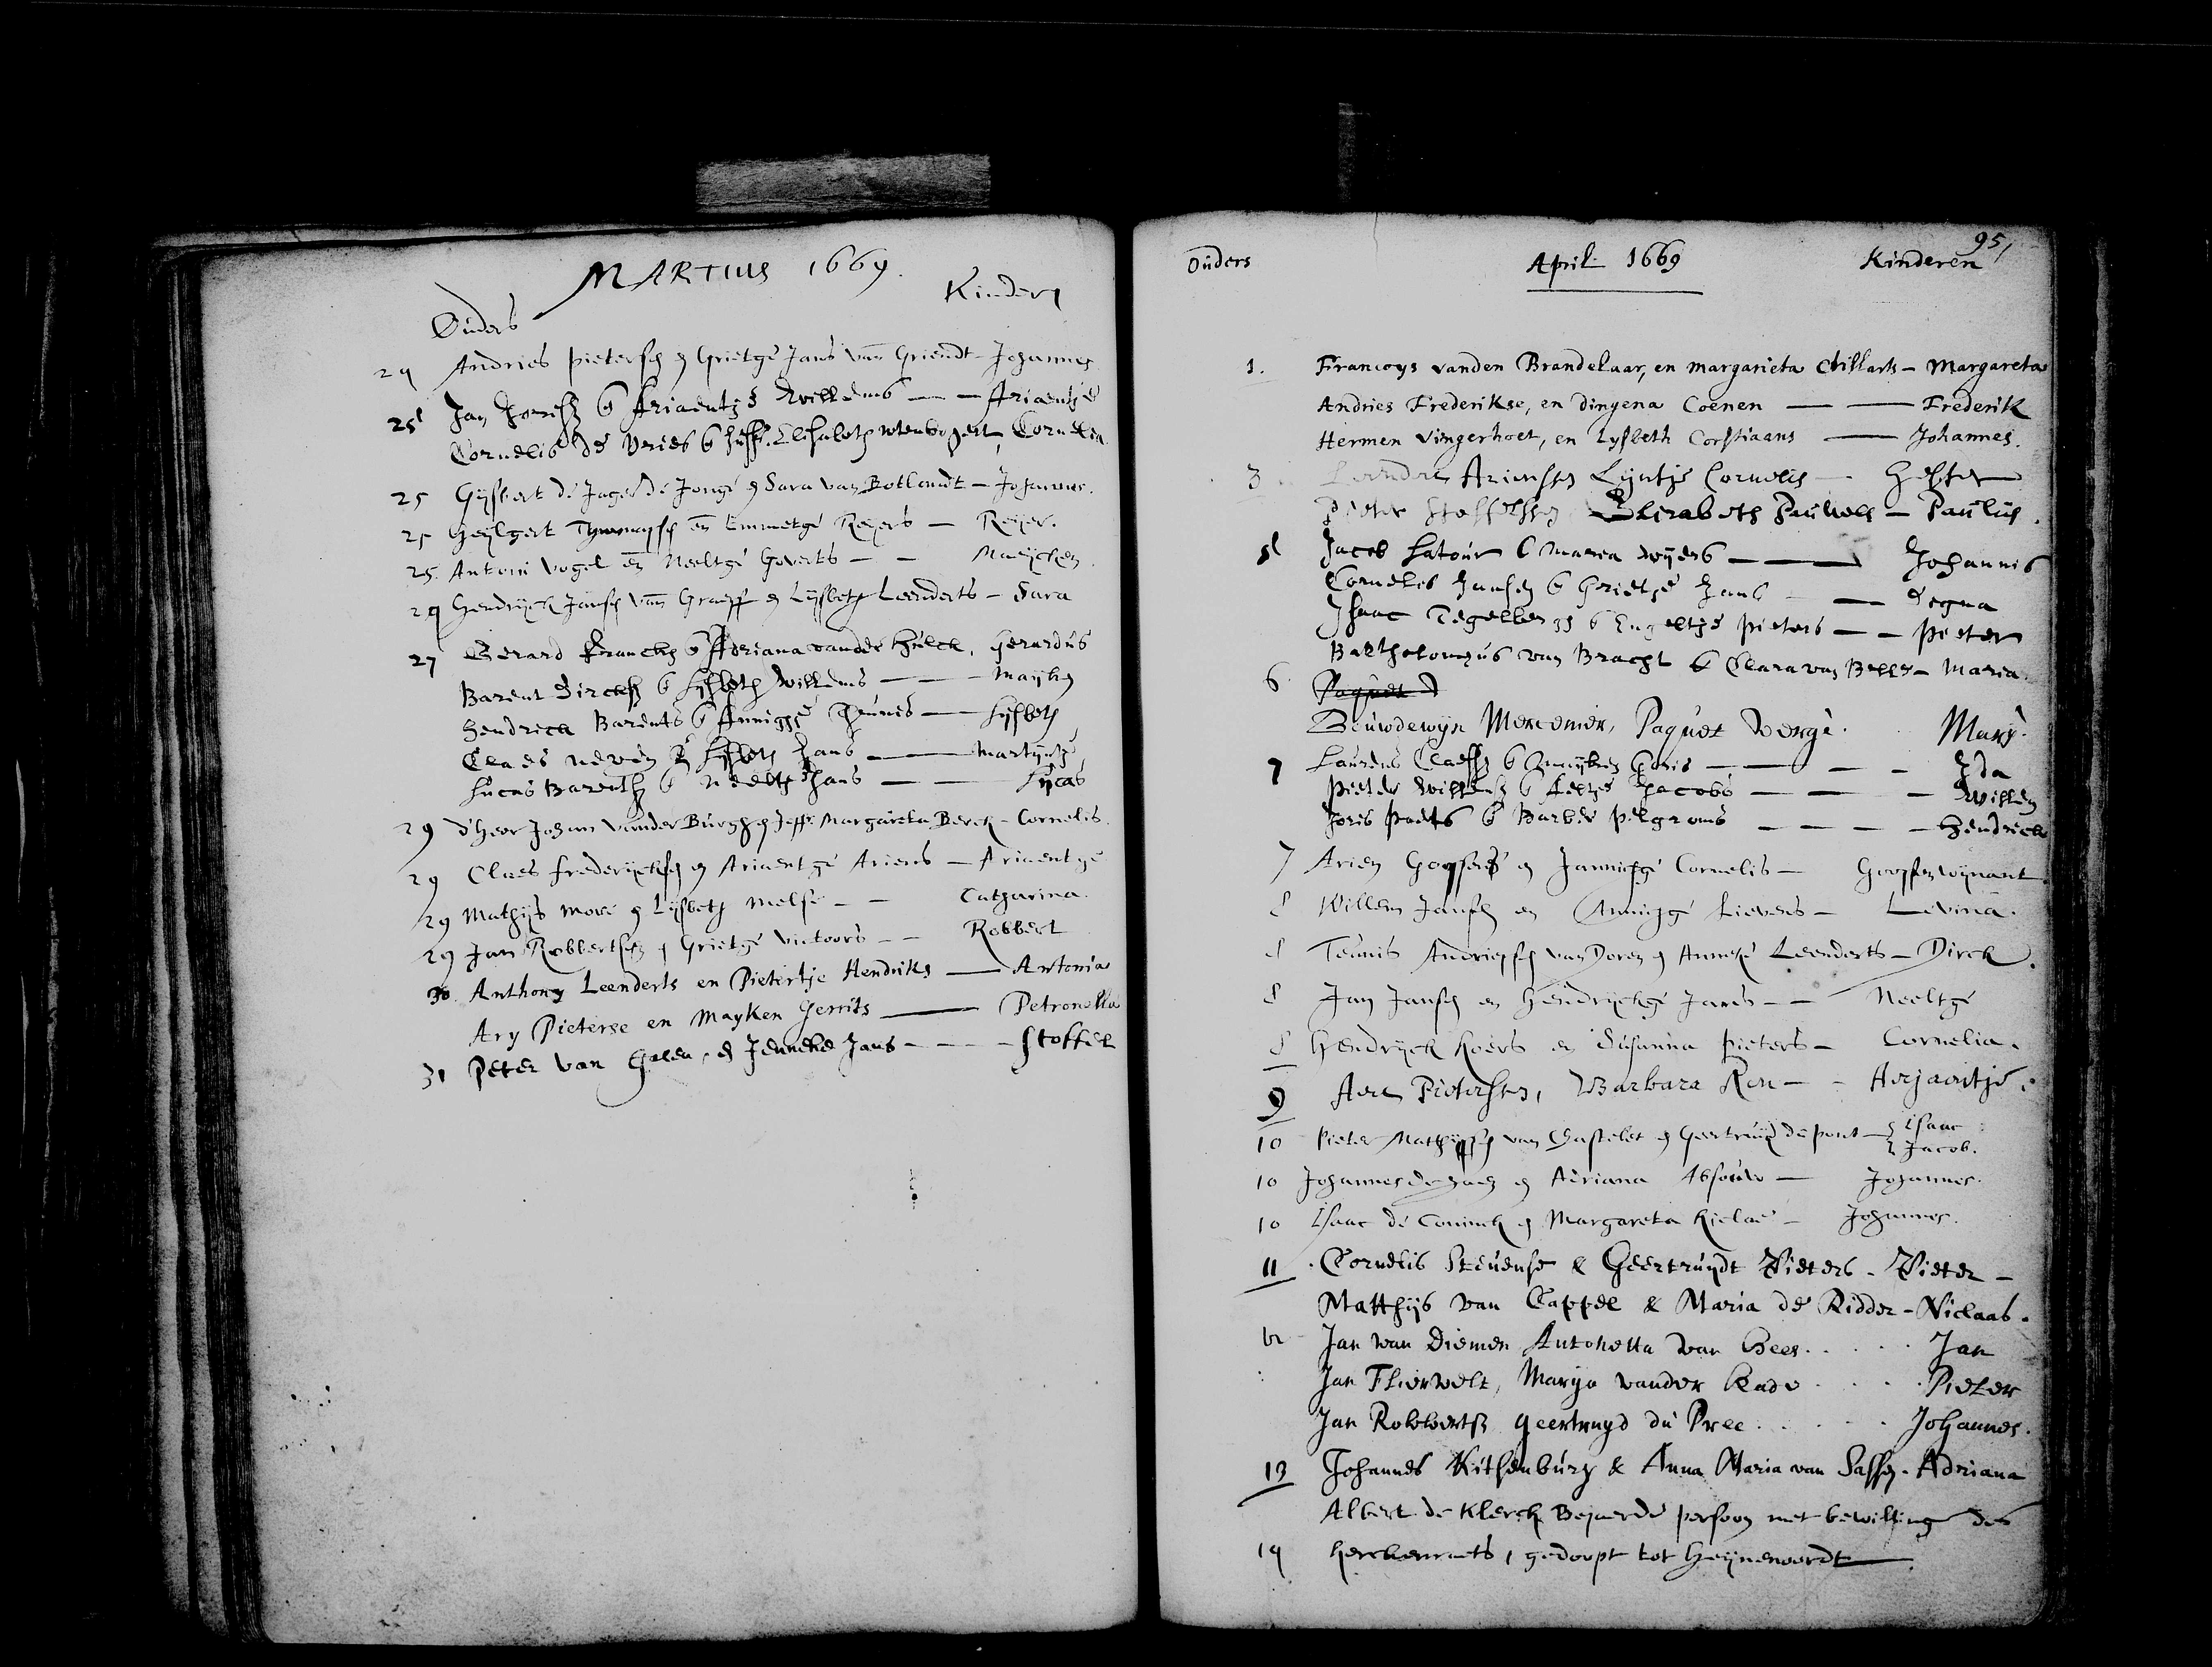 MARTIUS 1669.
Ouders Kinders
24 Andries pietersz en Grietge Jans van Griendt - Johannes
25 Jan Jorisz & Ariaentje Willems - Ariaentje
Cornelis de Vries & Juffr. Elisabeth wtenbogert, Cornelia
25 Gijsbert de Jager de Jonge en Sara van Botlandt - Johannes.
25 Heijlgert en Emmetge Reyers - Reyer.
25. Antoni Vogel en Neeltge Goverts - Maeijcken.
29 Hendrijck Jansz van Graeff en Lijsbeth Leenderts - Sara
27 Gerard Franckz & Adriana vander Hulck, Gerardus
Barent Dircksz & Lijsbeth Willems - Mayken
Hendrick Barents & Annigje Theunis - Lijsbeth
Claes Lijsbeth Jans - Martijntje
Lucas Barentsz & Neeltje Jans - Lucas
29 d'Heer Johan vander Burgh en Jeffr. Margareta Berck - Cornelis.
29 Claes frederijcksz en Ariaentge Ariens - Ariaentge
29 Mathijs More en Lijsbeth Melse - Catharina.
29 Jan Robbertsz en Grietge Victoors - Robbert
30. Anthony Leenderts en Pietertje Hendriks - Antonia
Ary Pieterse en Mayken Gerrits - Petronella
31 Peter van Galen, en Jenneke Jans - Stoffel
95,
Ouders April 1669 Kinderen
1. Francoys vanden Brandelaar, en margarieta - Margareta
Andries Frederikse, en Dingena Coenen - Frederik
Hermen Vingerhoet, en Lysbeth Corstiaans - Johannes.
3 Leendert Ariensen Lijntje Cornelis - Hester
Pieter Stoffelsen Elizabeth Pauwels - Paulus.
5 Jacob Latour & Maria Wijers - Johannis
Cornelis Jansen & Grietje Jans - Segna
Isaac & Engeltje Pieters - Pieter
Bartholomeus van Bracht & Clara van Belle - Maria
6 Paquet
Bouwdewijn Mercemier, Paquet Verge. Marij.
7 Laurens Claesz & Maijken Joris - Ida
Pieter Willemsz & Aeltje Jacobs - Willem
Joris Poets & Barber Pelgroms - Hendrick
7 Arien en Jannichge Cornelis - Goossenwynant.
8 Willem Jansz en Annichge Lievens - Levina.
8 Teunis Andriessz van Doren en Anneke Leenderts - Dirck.
8 Jan Jansz en Hendrijckge Jans - Neeltge
8 Hendrijck Koers en Susanna pieters - Cornelia.
9 Aert Pietersen, Barbara Ren - Aerjaentje.
10 Pieter Mathijssz van Castelet en Geertruijd du pont - Isaac
Jacob.
10 Johannes de Haes en Adriana Absouw - Johannes.
10 Isaac de Coninck en Margareta - Johannes.
11 Cornelis Stevense & Geertruijdt Pieters - Pieter -
Matthijs van Cappel & Maria de Ridder - Niclaas.
12 Jan van Diemen Antonetta van Hees..... Jan
Jan Flierwelt, Marya vander Kade.... Pieter
Jan Robbertsz Geertruyd du Pree..... Johannes.
13 Johannes Kitsenburg & Anna Maria van Sassen - Adriana
Albert de Klerck Bejaerde persoon met bewilling des
14 Kerckenraets, gedoopt tot Heijnenoordt